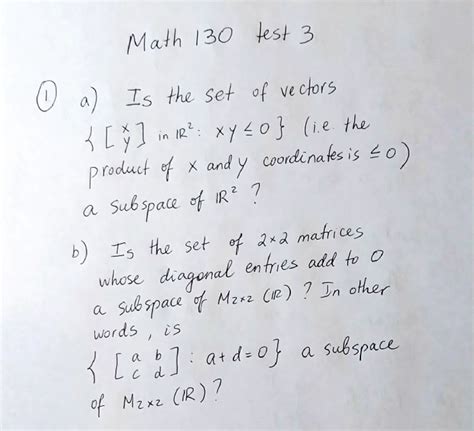 Math 130 test 3
① a) Is the set of vectors
{ [x y] in ℝ²: xy ≤ 0 } (i.e. the
product of x and y coordinates is ≤ 0)
a subspace of ℝ² ?
b) Is the set of 2×2 matrices
whose diagonal entries add to 0
a subspace of M₂ₓ₂ (ℝ) ? In other
words, is
{ [a b c d] : a+d=0 } a subspace
of M₂ₓ₂ (ℝ) ?